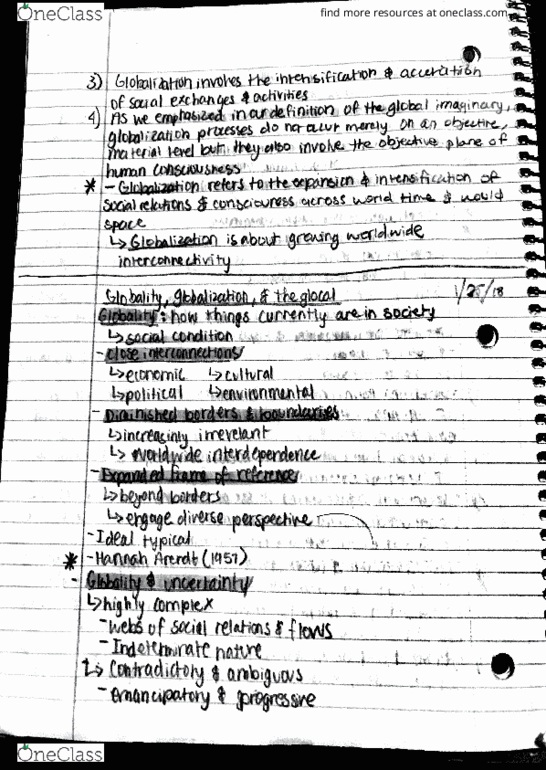 OneClass
find more resources at oneclass.com
3) Globalization involves the intensification & acceration
of social exchanges & activities
4) As we emphasized in our definition of the global imaginary,
globalization processes do not occur merely on an objective,
material level but they also involve the objective plane of
human consciousness
* - Globalization refers to the expansion & intensification of
social relations & consciouness across world time & would
space
↳ Globalization is about growing worldwide
interconnectivity
Globality, globalization, & the glocal 1/25/18
Globality: how things currently are in society
↳ social condition
- close interconnections
↳ economic ↳ cultural
↳ political ↳ environmental
- Diminished borders & boundaries
↳ increasinly irrevelant
↳ worldwide interdependence
- Expanded frame of reference
↳ beyond borders
↳ engage diverse perspective
- Ideal typical
* - Hannah Arerdt (1957)
- Globality & uncertainty
↳ highly complex
- webs of social relations & flows
- Indeterminate nature
↳ Contradictory & ambiguous
- emancipatory & progressive
OneClass